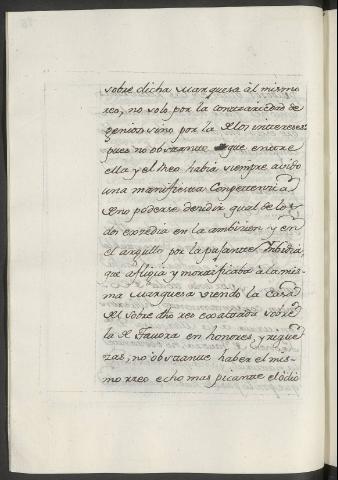 sobre dicha Marquesa àl mismo
reo, no solo por la contrariedad de
genios sino por la de los intereses
pues no obstante que entre
ella y el Reo habia siempre avido
una manifiesta Competencia
de no poderse decidir qual de los
dos excedia en la ambicion y en
el orgullo por la pujante Embidia
que afligia y mortificaba à la mis-
ma Marquesa viendo la Casa
del sobre dho reo exaltada sobre
la de Tavora en honores, y rique
zas, no obstante haber el mis-
mo rreo echo mas picante el òdio